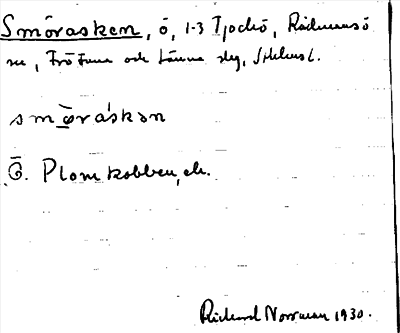 Smörasken, ö, 1-3 Tjockö, Rådmansö
sn, Frötuna och Länna slg, Sthlms l.
smö̀ráskən
Ö. Plomkobben, ek.
Rickard Norrman 1930.